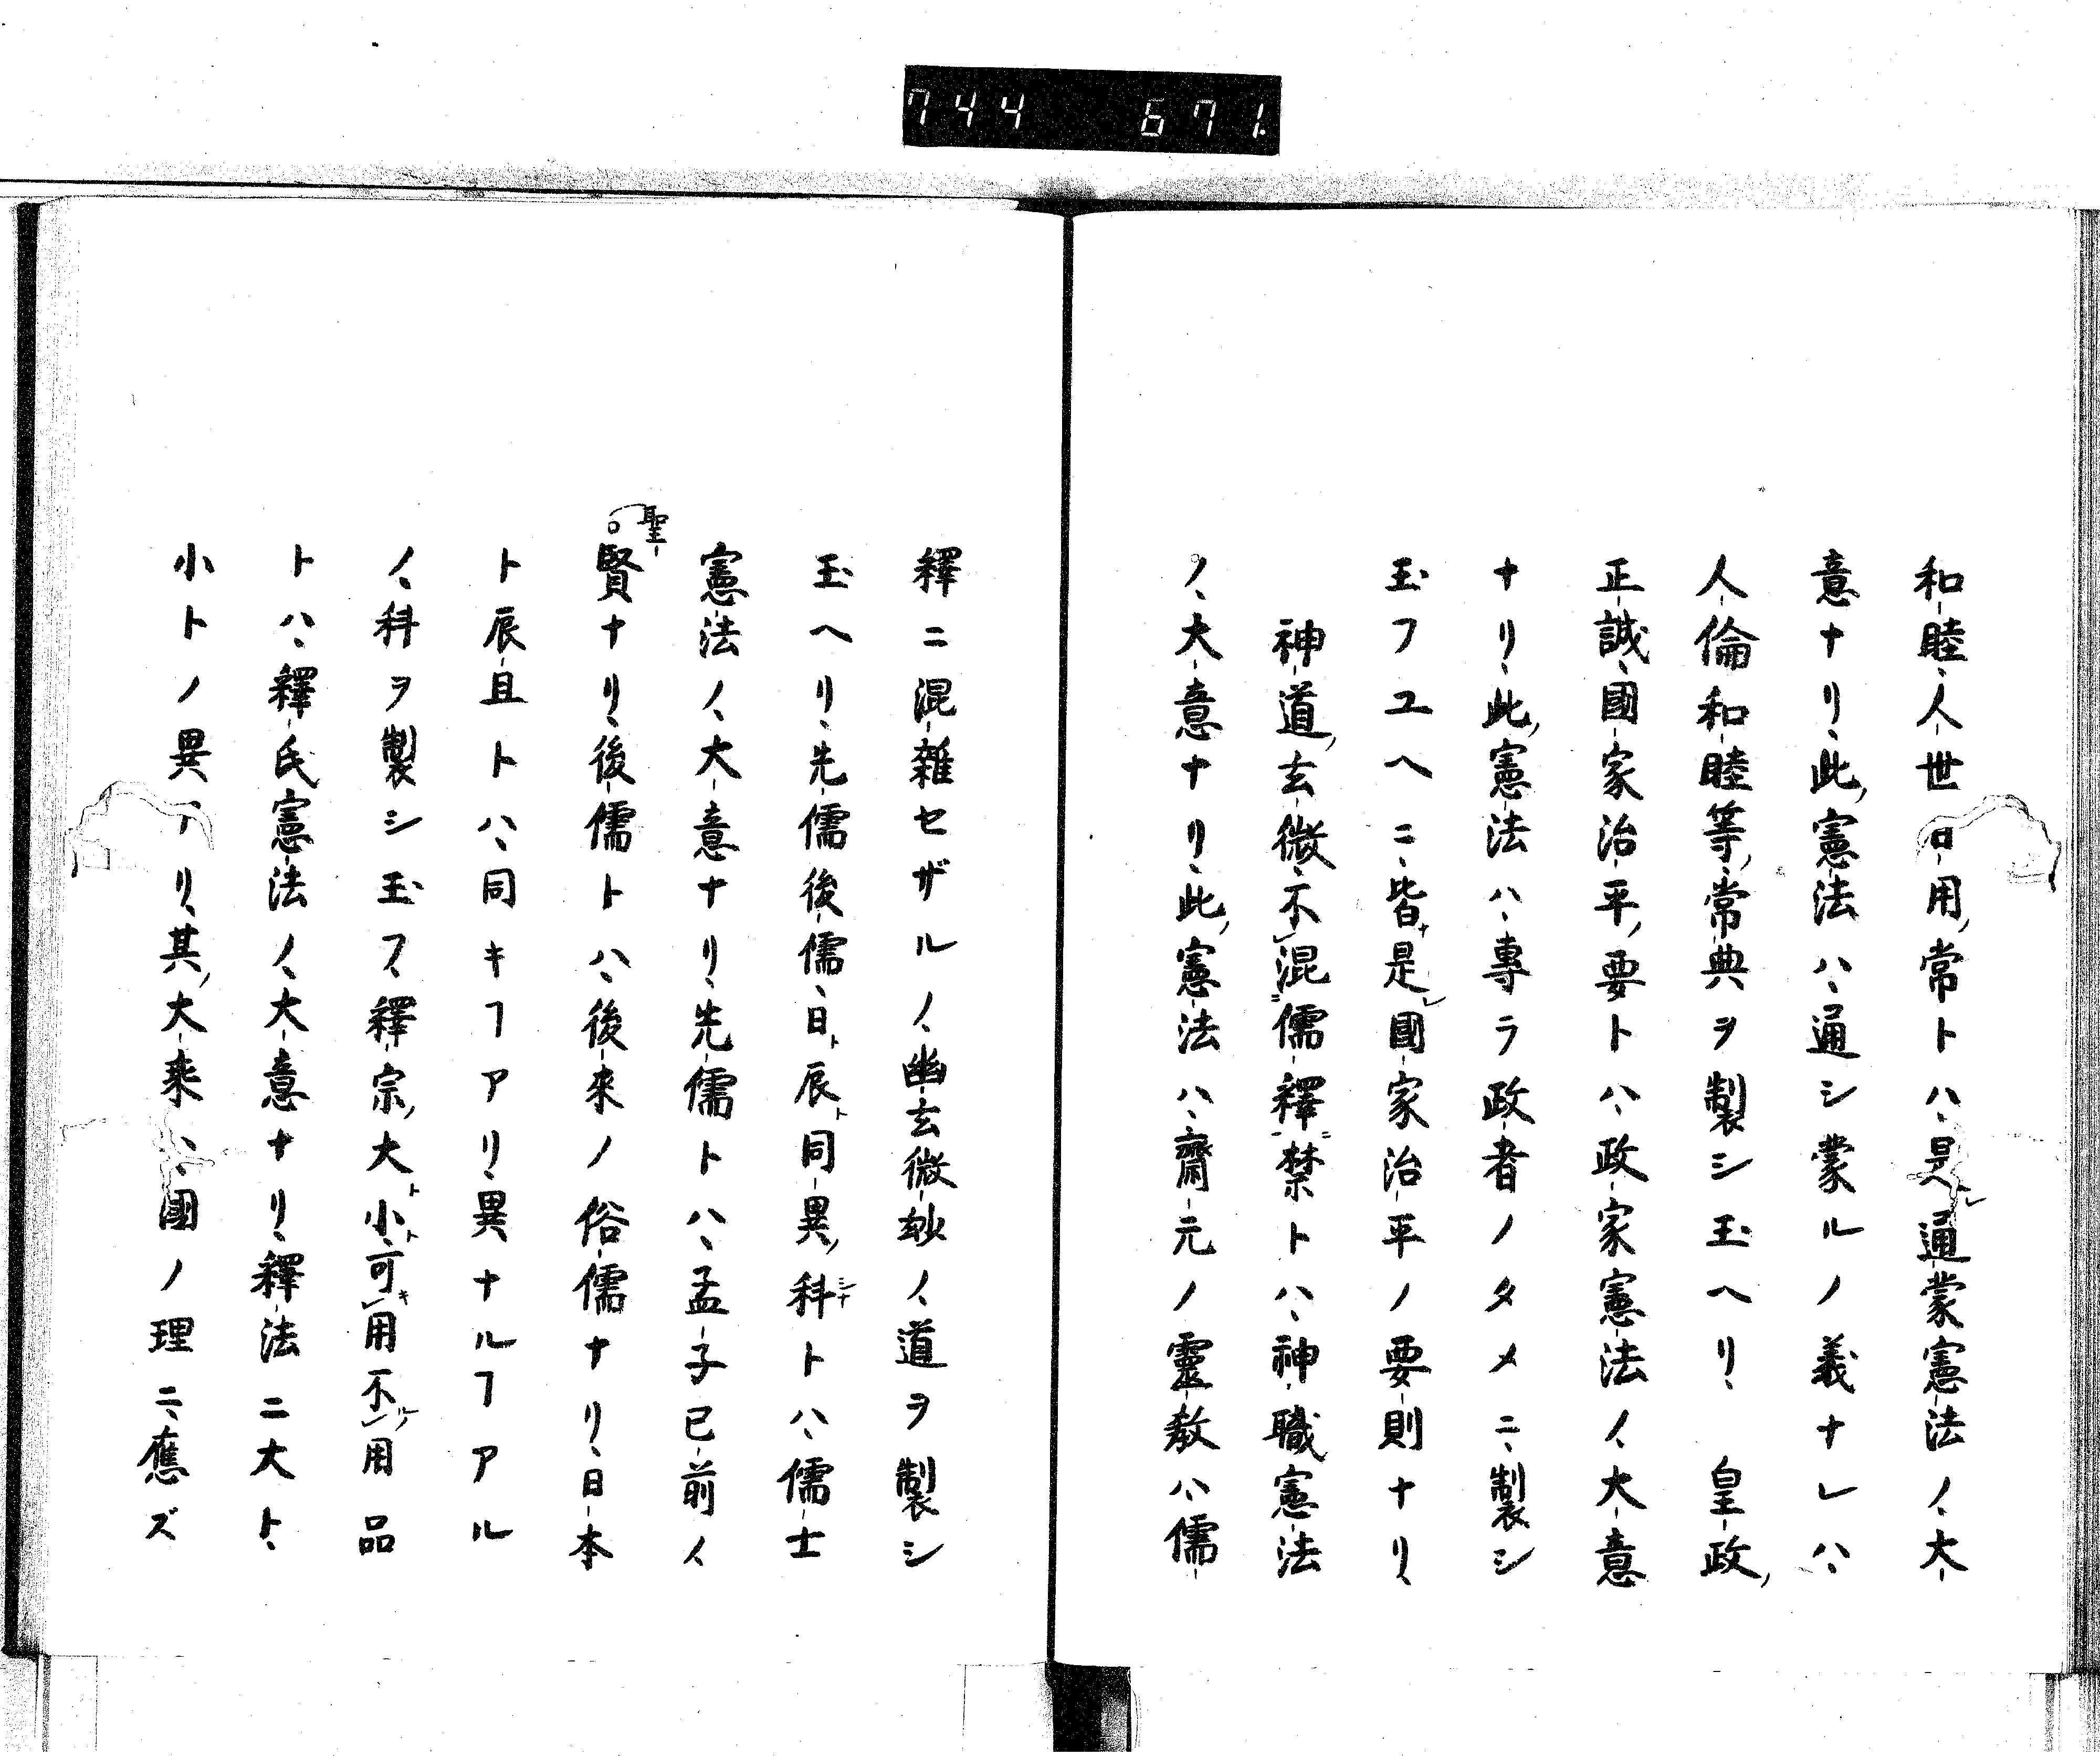 744 671.
和睦、人世日用、常トハ、是レ通蒙憲法ノ、大
意ナリ、此、憲法ハ、通シ蒙ルノ義ナレハ、
人倫和睦等、常典ヲ製シ玉ヘリ、皇政、
正誠、國家治平、要トハ、政家憲法ノ、大意
ナリ、此、憲法ハ、專ラ政者ノタメニ、製シ
玉フユヘニ、皆ナ是レ國家治平ノ要則ナリ、
神道、玄微、不レ混二儒釋一禁トハ、神職憲法
ノ、大意ナリ、此、憲法ハ、齋元ノ靈教ハ、儒
釋ニ混雜セザルノ、幽玄微玅ノ、道ヲ製シ
玉ヘリ、先儒後儒、日ト辰ト同異、科シナトハ、儒士
憲法ノ、大意ナリ、先儒トハ、孟子已前ノ
聖賢ナリ、後儒トハ、後來ノ俗儒ナリ、日本
ト辰且トハ、同キヿアリ、異ナルヿアル
ノ、科ヲ製シ玉フ、釋宗、大ト小ト可キレ用不ルノレ用品
トハ、釋氏憲法ノ、大意ナリ、釋法ニ大ト、
小トノ異アリ、其、大乗ハ、國ノ理ニ、應ズ